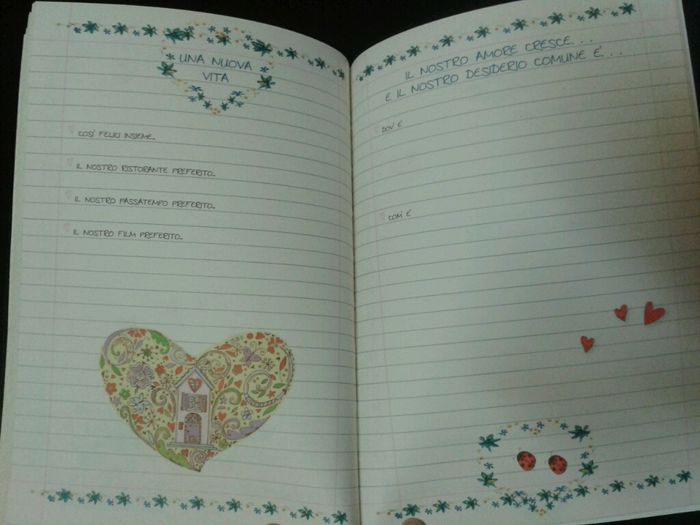 UNA NUOVA
VITA
COSÌ FELICI INSIEME...
IL NOSTRO RISTORANTE PREFERITO...
IL NOSTRO PASSATEMPO PREFERITO...
IL NOSTRO FILM PREFERITO...
IL NOSTRO AMORE CRESCE...
E IL NOSTRO DESIDERIO COMUNE E'...
DOV'È
COM'È